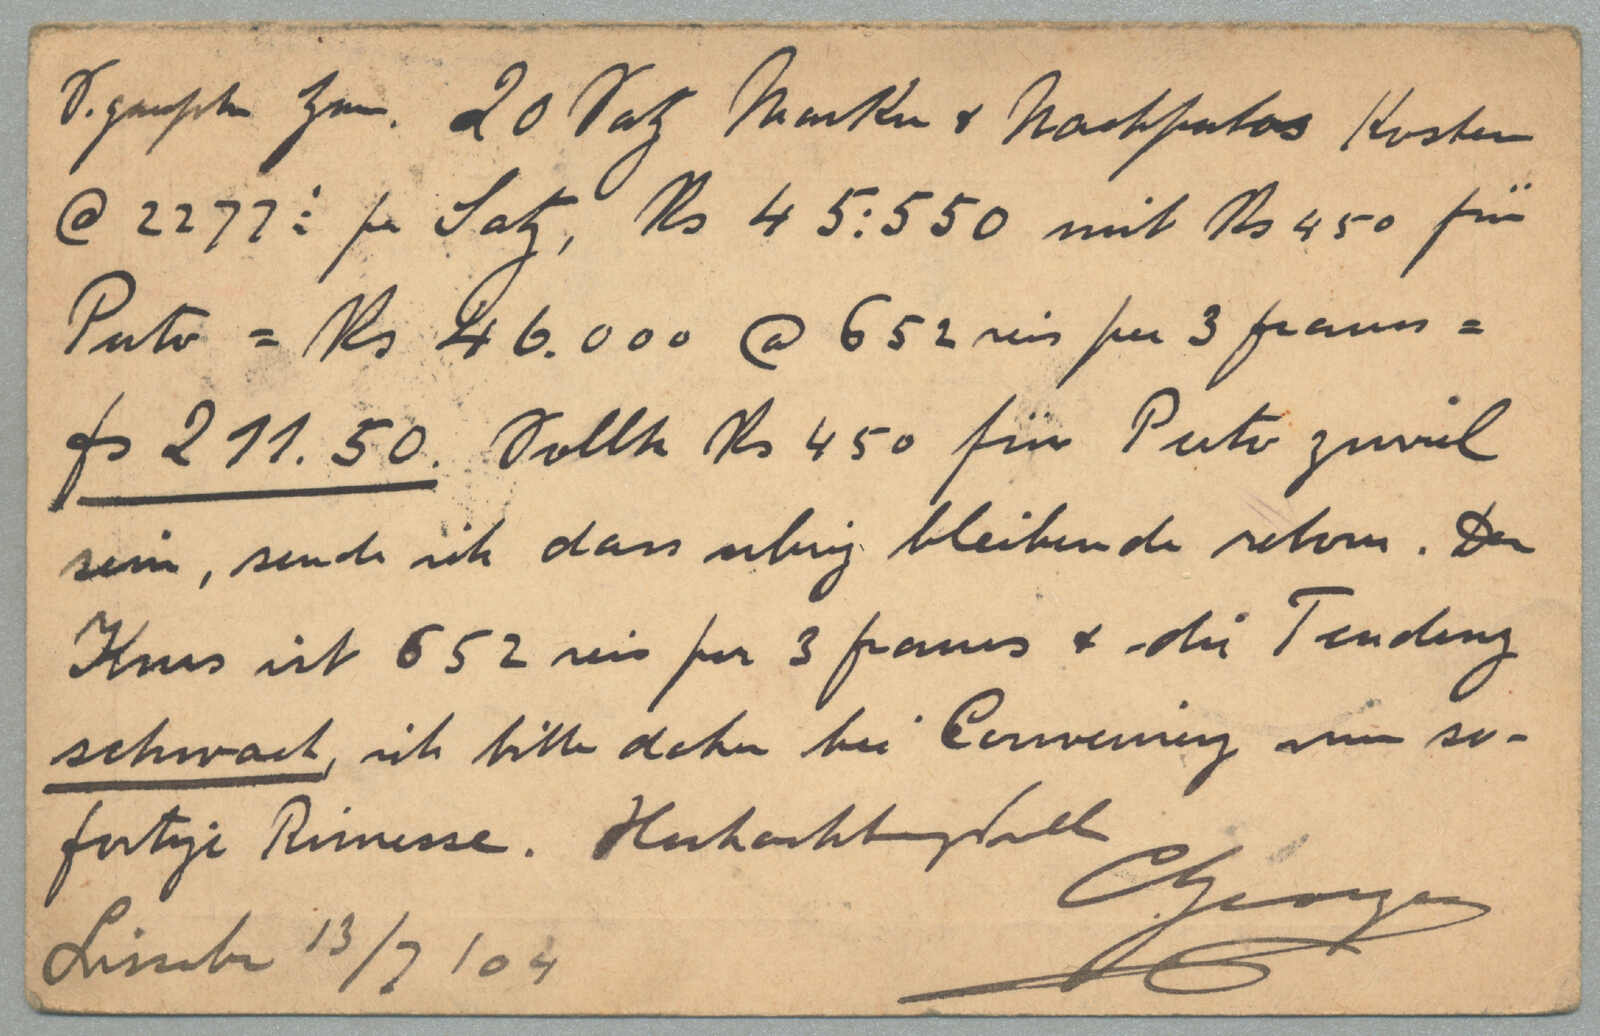 20 Satz Marken & Nachportos Kosten
@ 2277½ per Satz, Rs 45:550 mit Rs 450 für
Porto = Rs 46.000 @ 652 reis per 3 francs =
fs 211.50. Sollte Rs 450 für Porto zuviel
sein, sende ich dass übrig bleibende retour. Der
Kurs ist 652 reis per 3 francs & die Tendenz
schwach, ich bitte daher bei Convenienz um so-
fortige Rimesse. Hochachtungsvoll
Lissabon 13/7/04